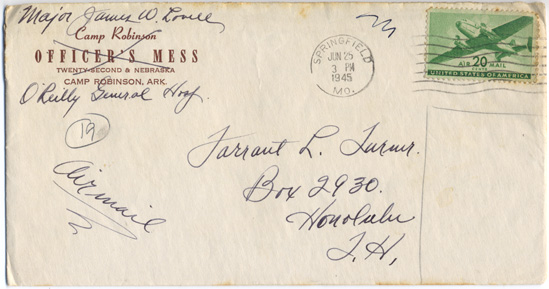 Major James W. Lovell
Camp Robinson
OFFICER'S MESS
TWENTY-SECOND & NEBRASKA
CAMP ROBINSON, ARK.
O'Reilly General Hosp.
19
Airmail
SPRINGFIELD
JUN 25
3 PM
1945
MO.
AIR 20 MAIL
CENTS
UNITED STATES OF AMERICA
Farrant L. Turner.
Box 2930.
Honolulu
T.H.